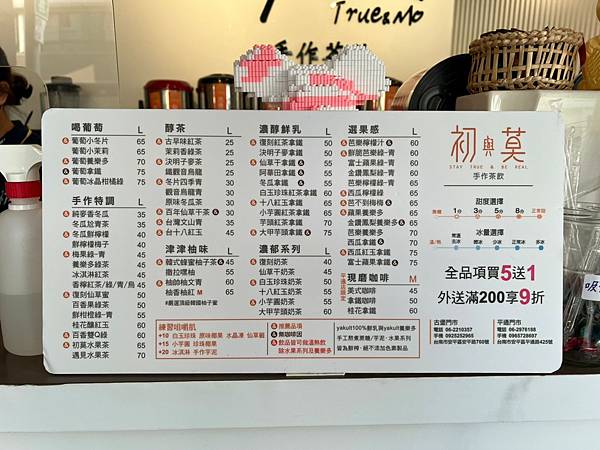 True&Mo
手作茶飲
喝葡萄 L
葡萄小冬片 65
葡萄小茉莉 65
葡萄養樂多 70
葡萄拿鐵 75
葡萄冰晶柑橘綠 75
手作特調 L
純麥香冬瓜 35
冬瓜尬青茶 35
冬瓜鮮檸檬 40
鮮檸檬梅子 40
梅果綠-青
養樂多綠茶
冰淇淋紅茶 45
香檸紅茶/綠/青/烏 45
復刻仙草蜜 50
百香果綠茶 50
鮮柑橙綠-青 50
桂花釀紅玉 60
百香雙Q綠 60
初莫水果茶 65
遇見水果茶 70
醇茶 L
古早味紅茶 25
茉莉香綠茶 25
決明子麥茶 25
鐵觀音烏龍 30
冬片四季青 30
觀音烏龍青 30
原味冬瓜茶 30
百年仙草干茶 30
台灣文山青 35
台十八紅玉 45
津津柚味 L
韓式蜂蜜柚子茶 65
撒拉嘿柚 55
柚帥柚文青 60
柚香柚紅 M 60
濃醇鮮乳 L
復刻紅茶拿鐵
決明子麥拿鐵
仙草干拿鐵
阿華田拿鐵
冬瓜拿鐵
白玉珍珠紅茶拿鐵
十八紅玉拿鐵
小芋圓紅茶拿鐵
芋頭紅茶拿鐵
大甲芋頭拿鐵
濃郁系列 L
復刻奶茶 40
仙草干奶茶
白玉珍珠奶茶 50
十八紅玉奶茶 50
小芋圓奶茶
大甲芋頭奶茶
選果感 L
芭樂檸檬汁 60
鮮脆芭樂綠-青
富士蘋果綠-青
金鑽鳳梨綠-青
芭樂檸檬綠
西瓜檸檬綠
芭不到梅梅
蘋果養樂多
金鑽鳳梨養樂多
芭樂養樂多
西瓜拿鐵
西瓜紅茶拿鐵
富士蘋果拿鐵 75
現磨咖啡 M
美式咖啡 40
拿鐵咖啡
桂花拿鐵
練習咀嚼肌
+10 白玉珍珠 原味椰果 水晶凍 仙草錣
+15 小芋圓 珍珠椰果
+20 冰淇淋 手作芋泥
推薦品項
無咖啡因
飲品皆可做溫熱飲
除水果系列及養樂多
yakult100%鮮乳與yakult養樂多
手工熬煮蔗糖/芋泥·水果系列
皆為鮮榨·絕不添加色素製品
初與莫
STAY TRUE & BE REAL
手作茶飲
甜度選擇
無糖 1分 3分 5分 7分 正常甜
冰量選擇
溫/熱 常溫 去冰 微冰 少冰 正常冰 多冰
全品項買5送1
外送滿200享9折
古堡門市
電話 06-2210357
手機 0925252965
台南市安平區安平路760號
平通門市
電話 06-2978188
手機 0965728607
台南市安平區平通路425號